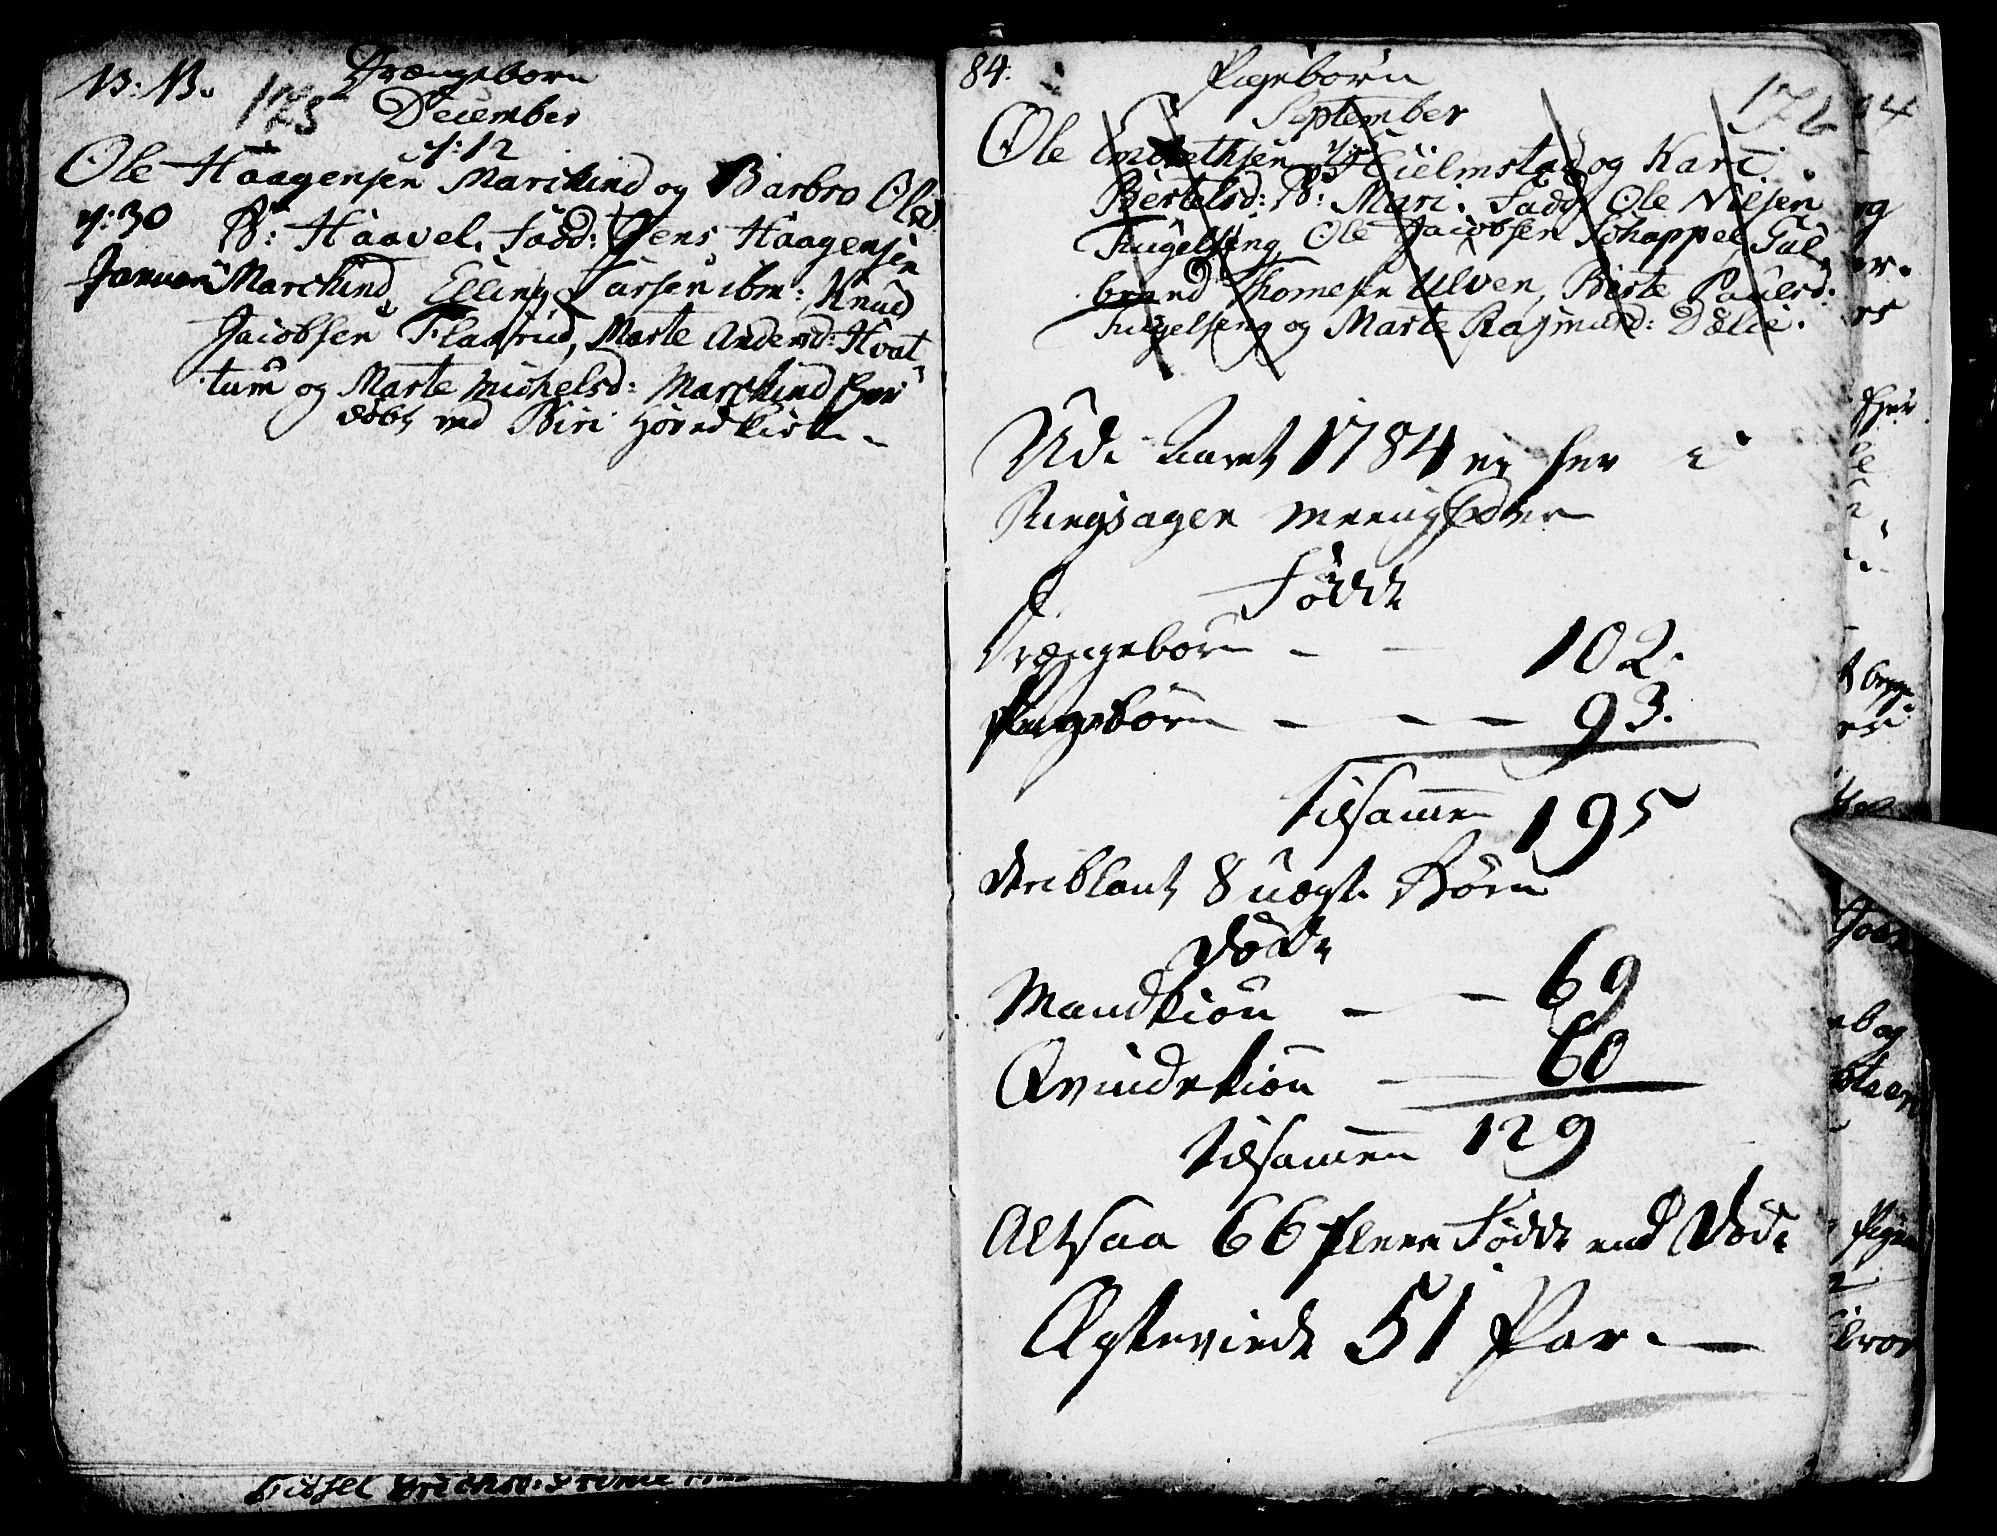 N: B.
175
Drængebørn
December
d: 12
Ole Haagensen Marchind og Barbro Olsd
d: 30 B: Haavel, Fadd: Jens Haagensen
Januari Marchind, Elling Larsen ibm: Knud
Jacobsen Flaarud, Marte Andersd: Hvat
tum og Marte Michelsd: Marchind
døbt ved Biri Hovedkirke
84:
Pigebørn
176
September
Ole Hielmstad og Kari
Bertelsd: B: Mari. Fadd Ole Nilsen
Fugelseng, Ole Jacobsen Schappel, Gul
brand Thomesen Ulven, Birte Paulsd:
Fugelseng og Marte Rasmusd: Dælie.
Udi Aaret 1784 er her i
Ringsager Meenigheder
Fødde
Drængebørn - - 102.
Pigebørn - - - 93.
tilsammen 195
deriblant 8 uægte Børn
døde
Mandkiøn - - 69
Qvindekiøn - 60
tilsammen 129
Altsaa 66 fleere Fødde end Døde
Ægteviede 51 Par. -